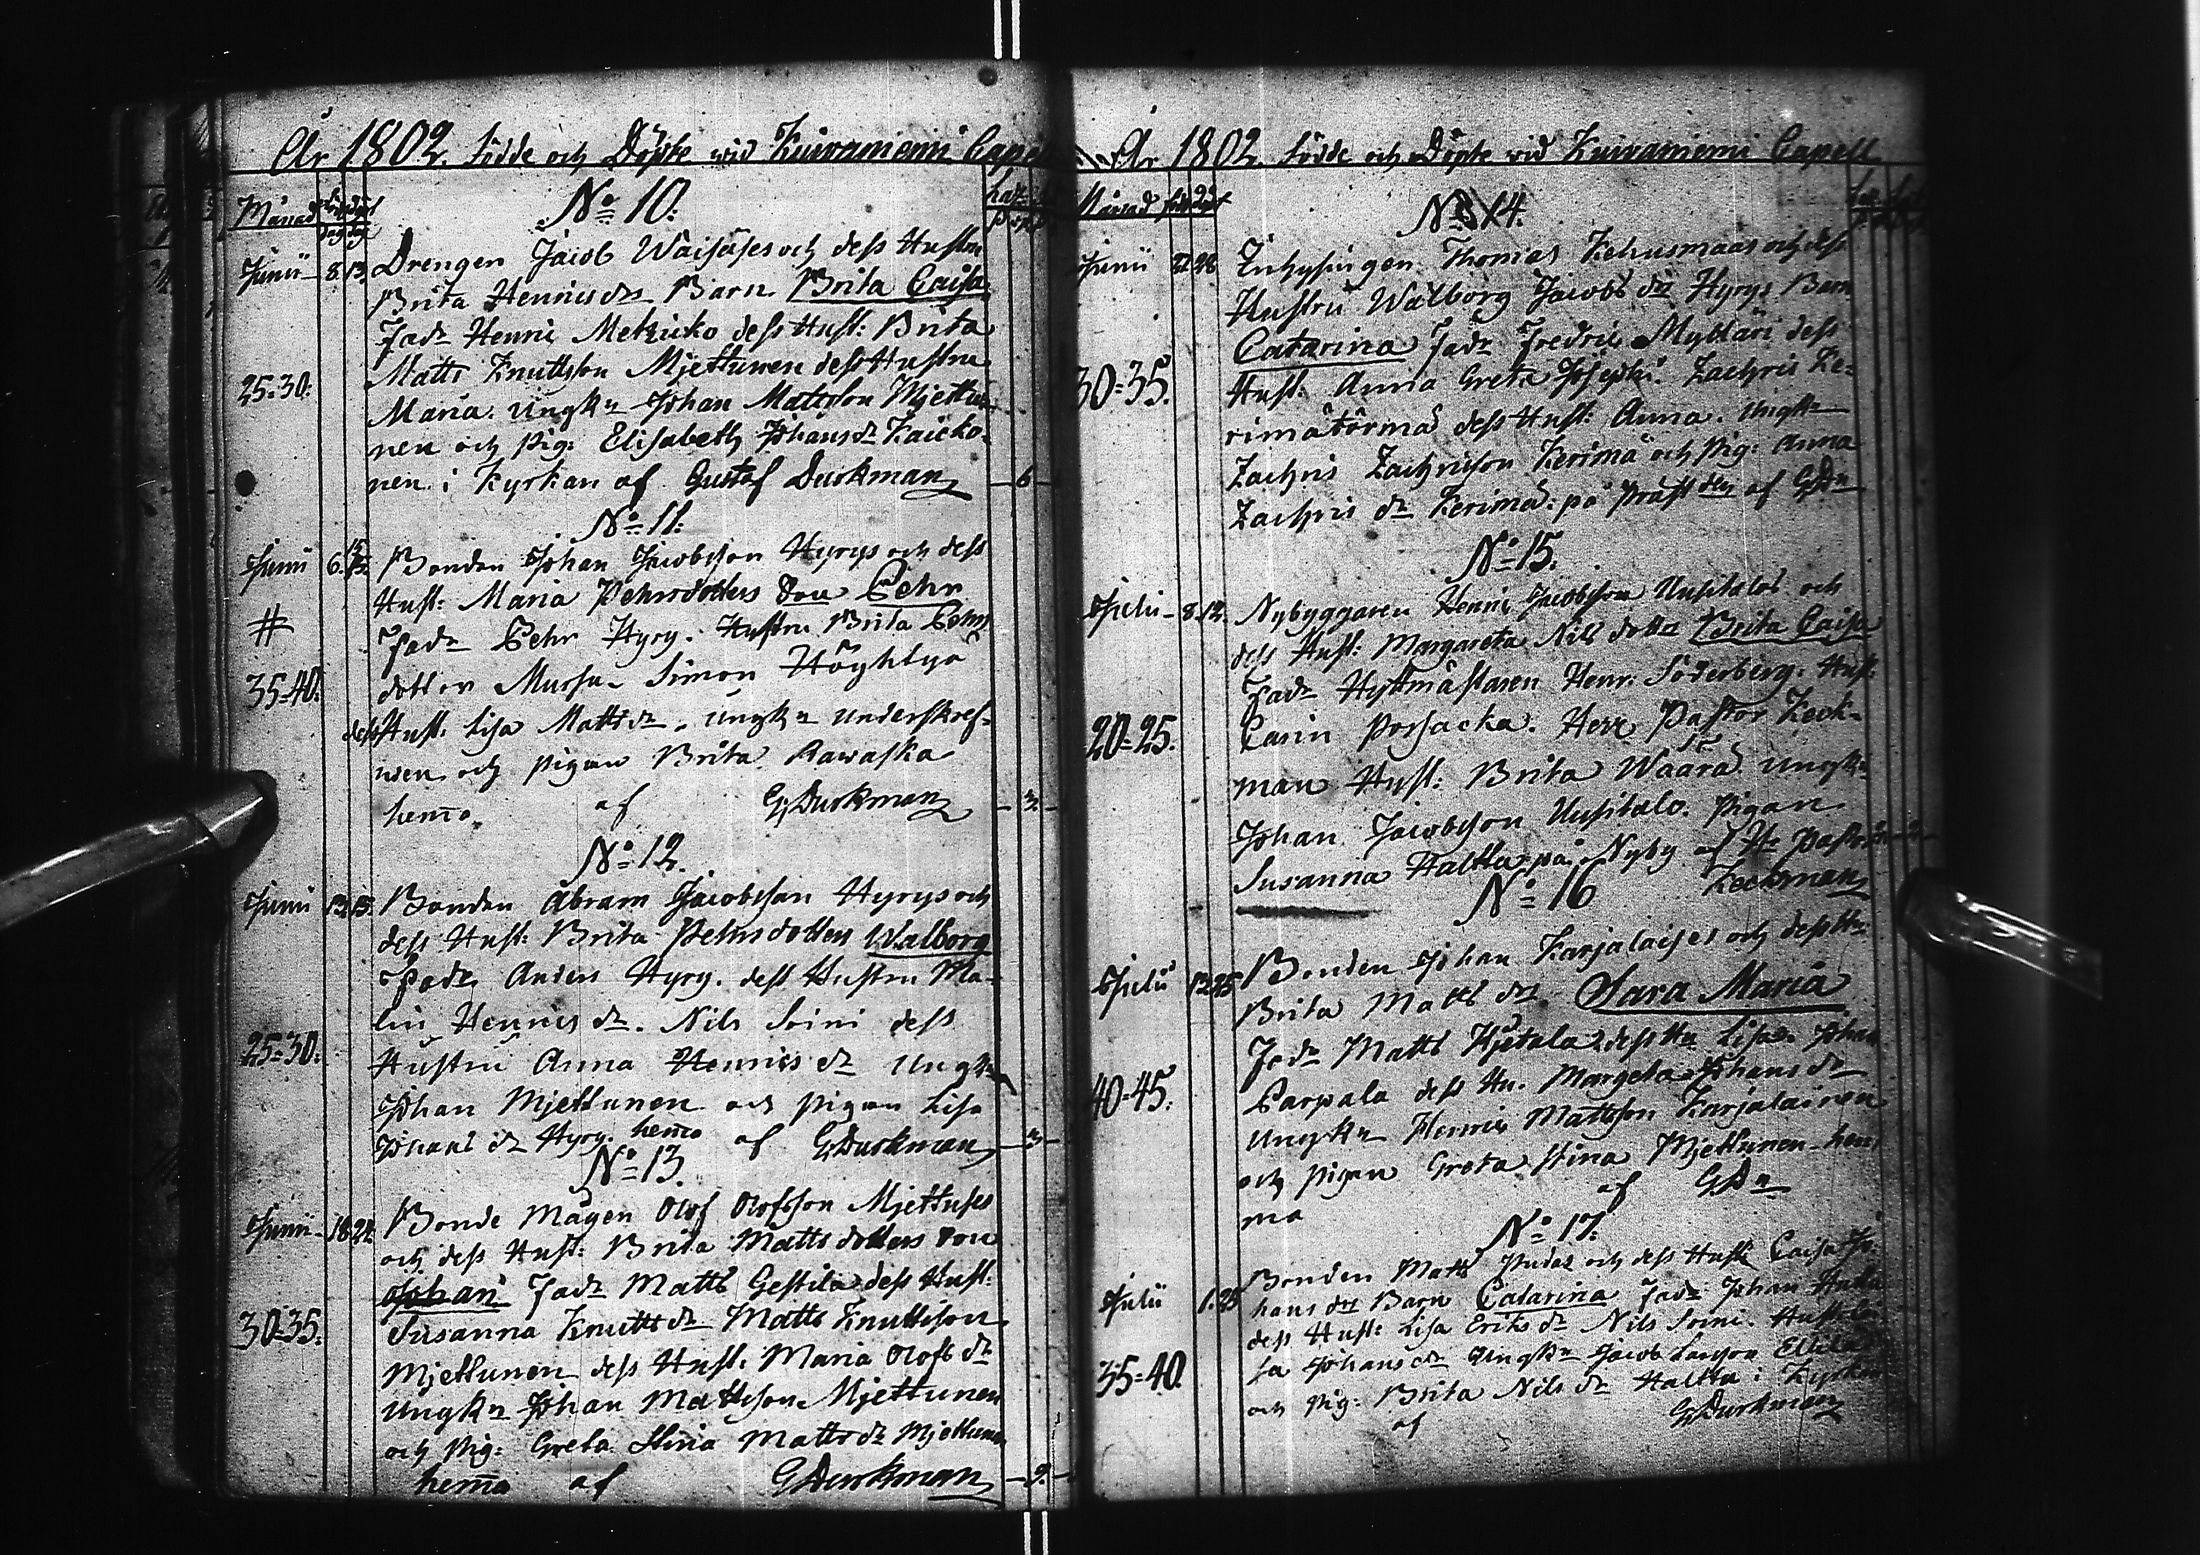 År 1802. Födde och Döpte wid Kuivaniemi Capell
Månad
No 10.
Junii 8. 13. Drengen Jacob Wäisäses och dess Hustru
Brita Henricsdrs Barn Brita Caisa
Fadr Henric Metzicko dess Hust: Brita
25=30. Matts Knuttsson Mjettunen dess Hustru
Maria. Ungkn Johan Mattsson Mjettu=
nen och Pig: Elisabeth Johansdr Kaicko=
nen i Kyrkan af Gustaf Durkman 6
No 11.
Junii 6. Bonden Johan Jacobsson Hyrys och dess
Hust: Maria Pehrsdotters son Pehr
# Fadr Pehr Hyry. Hustru Brita Pehrs
35=40. dotter Mursu. Simon Höyhtyä
dess Hust: Lisa Mattsdr. Ungkn Underskref=
wen och Pigan Brita Rawaska
hema af GDurkman 3.
No 12.
Junii 13. 15. Bonden Abram Jacobsson Hyrys och
dess Hust: Brita Pehrsdotters Walborg
Fadr Anders Hyry. dess Hustru Ma=
lin Henricsdr. Nils Soini dess
25=30. Hustru Anna Henricsdr Ungkn
Johan Mjettunen och Pigan Lisa
Johansdr Hyry. hema af GDurkman 3
No 13.
Junii 18. 24. Bonde Mågen Olof Olofsson Mjettuses
och dess Hust: Brita Mattsdotters son
Johan Fadr Matts Gestila dess Hust:
30=35. Susanna Knuttsdr Matts Knuttsson
Mjettunen dess Hust: Maria Olofsdr
Ungkn Johan Mattsson Mjettunen
och Pig: Greta Stina Mattsdr Mjettunen
hema af GDurkman 9.
År 1802. Födde och Döpte wid Kuivaniemi Capell
Månad
No 14.
Junii Inhysingen Thomas Kehusmaas och dess
Hustru Walborg Jacobsdrs Hyrys Barn
Catarina Fadr Fredric Mylläri dess
30=35. Hust: Anna Greta Josephsd. Zachris Ke=
rimätörmä dess Hust: Anna. Ungkn
Zachris Zachrisson Kerimä och Pig: Anna
Zachris dr Kerimä. på Präst af GDn
No 15.
Julii 8. 12. Nybyggaren Henric Jacobsson Uusitalos och
dess Hust: Margareta Nilsdotters Brita Caisa
Fadr Hyttmästaren Henr. Söderberg. Hust:
20=25. Carin Porsacka. Herr Pastor Keck=
man Hust: Brita Waara. Ungkn
Johan Jacobsson Uusitalo. Pigan
Susanna Haltta på Nyby af Hr Pastor
Keckman
No 16
Julii 12. 25 Bonden Johan Karjalaises och dess Hu:
Brita Mattsdrs Sara Maria
Fadr Matts Hjetala dess Hu Lisa. Johan
40=45. Parpala dess Hu. Margeta Johansdr
Ungkn Henric Mattsson Karjalainen
och Pigan Greta Stina Mjettunen he=
ma af GDn
No 17.
Julii 1. 25 Bonden Matts Pudas och dess Hust: Caisa Jo=
hansdrs Barn Catarina Fadr Johan
dess Hust: Lisa Eriksdr Nils Soini. Hust: Li=
35=40. sa Johansdr Ungkn Jacob Larsson
och Pig: Brita Nilsdr Haltta i Kyrkan
af GDurkman